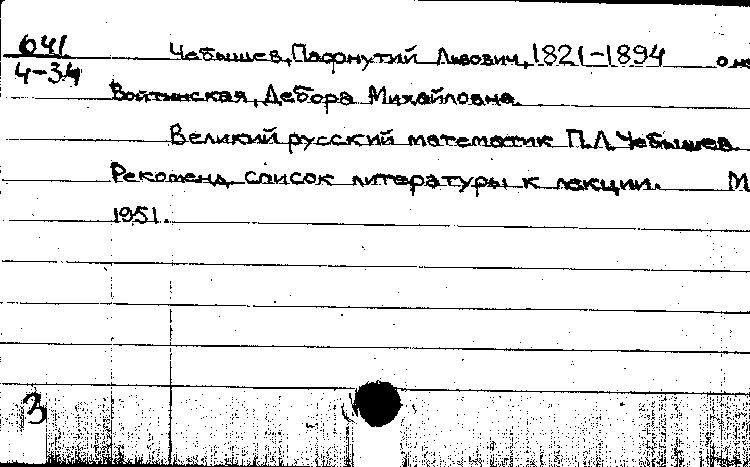 641
Ч-34
Чебышев, Пафнутий Львович, 1821-1894 о не
Войтинская, Дебора Михайловна.
Великий русский математик П.Л. Чебышев.
Рекоменд. список литературы к лекции. М
1951.
3